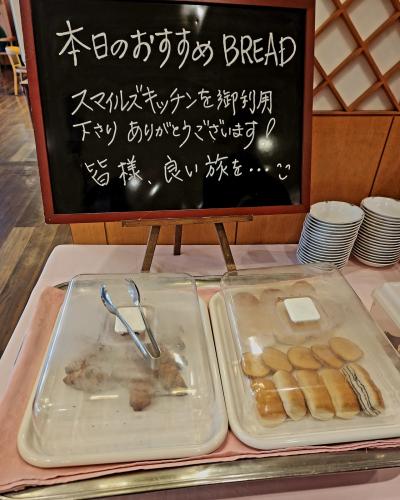 本日のおすすめ BREAD
スマイルズキッチンを御利用
下さり ありがとうございます!
皆様、良い旅を…